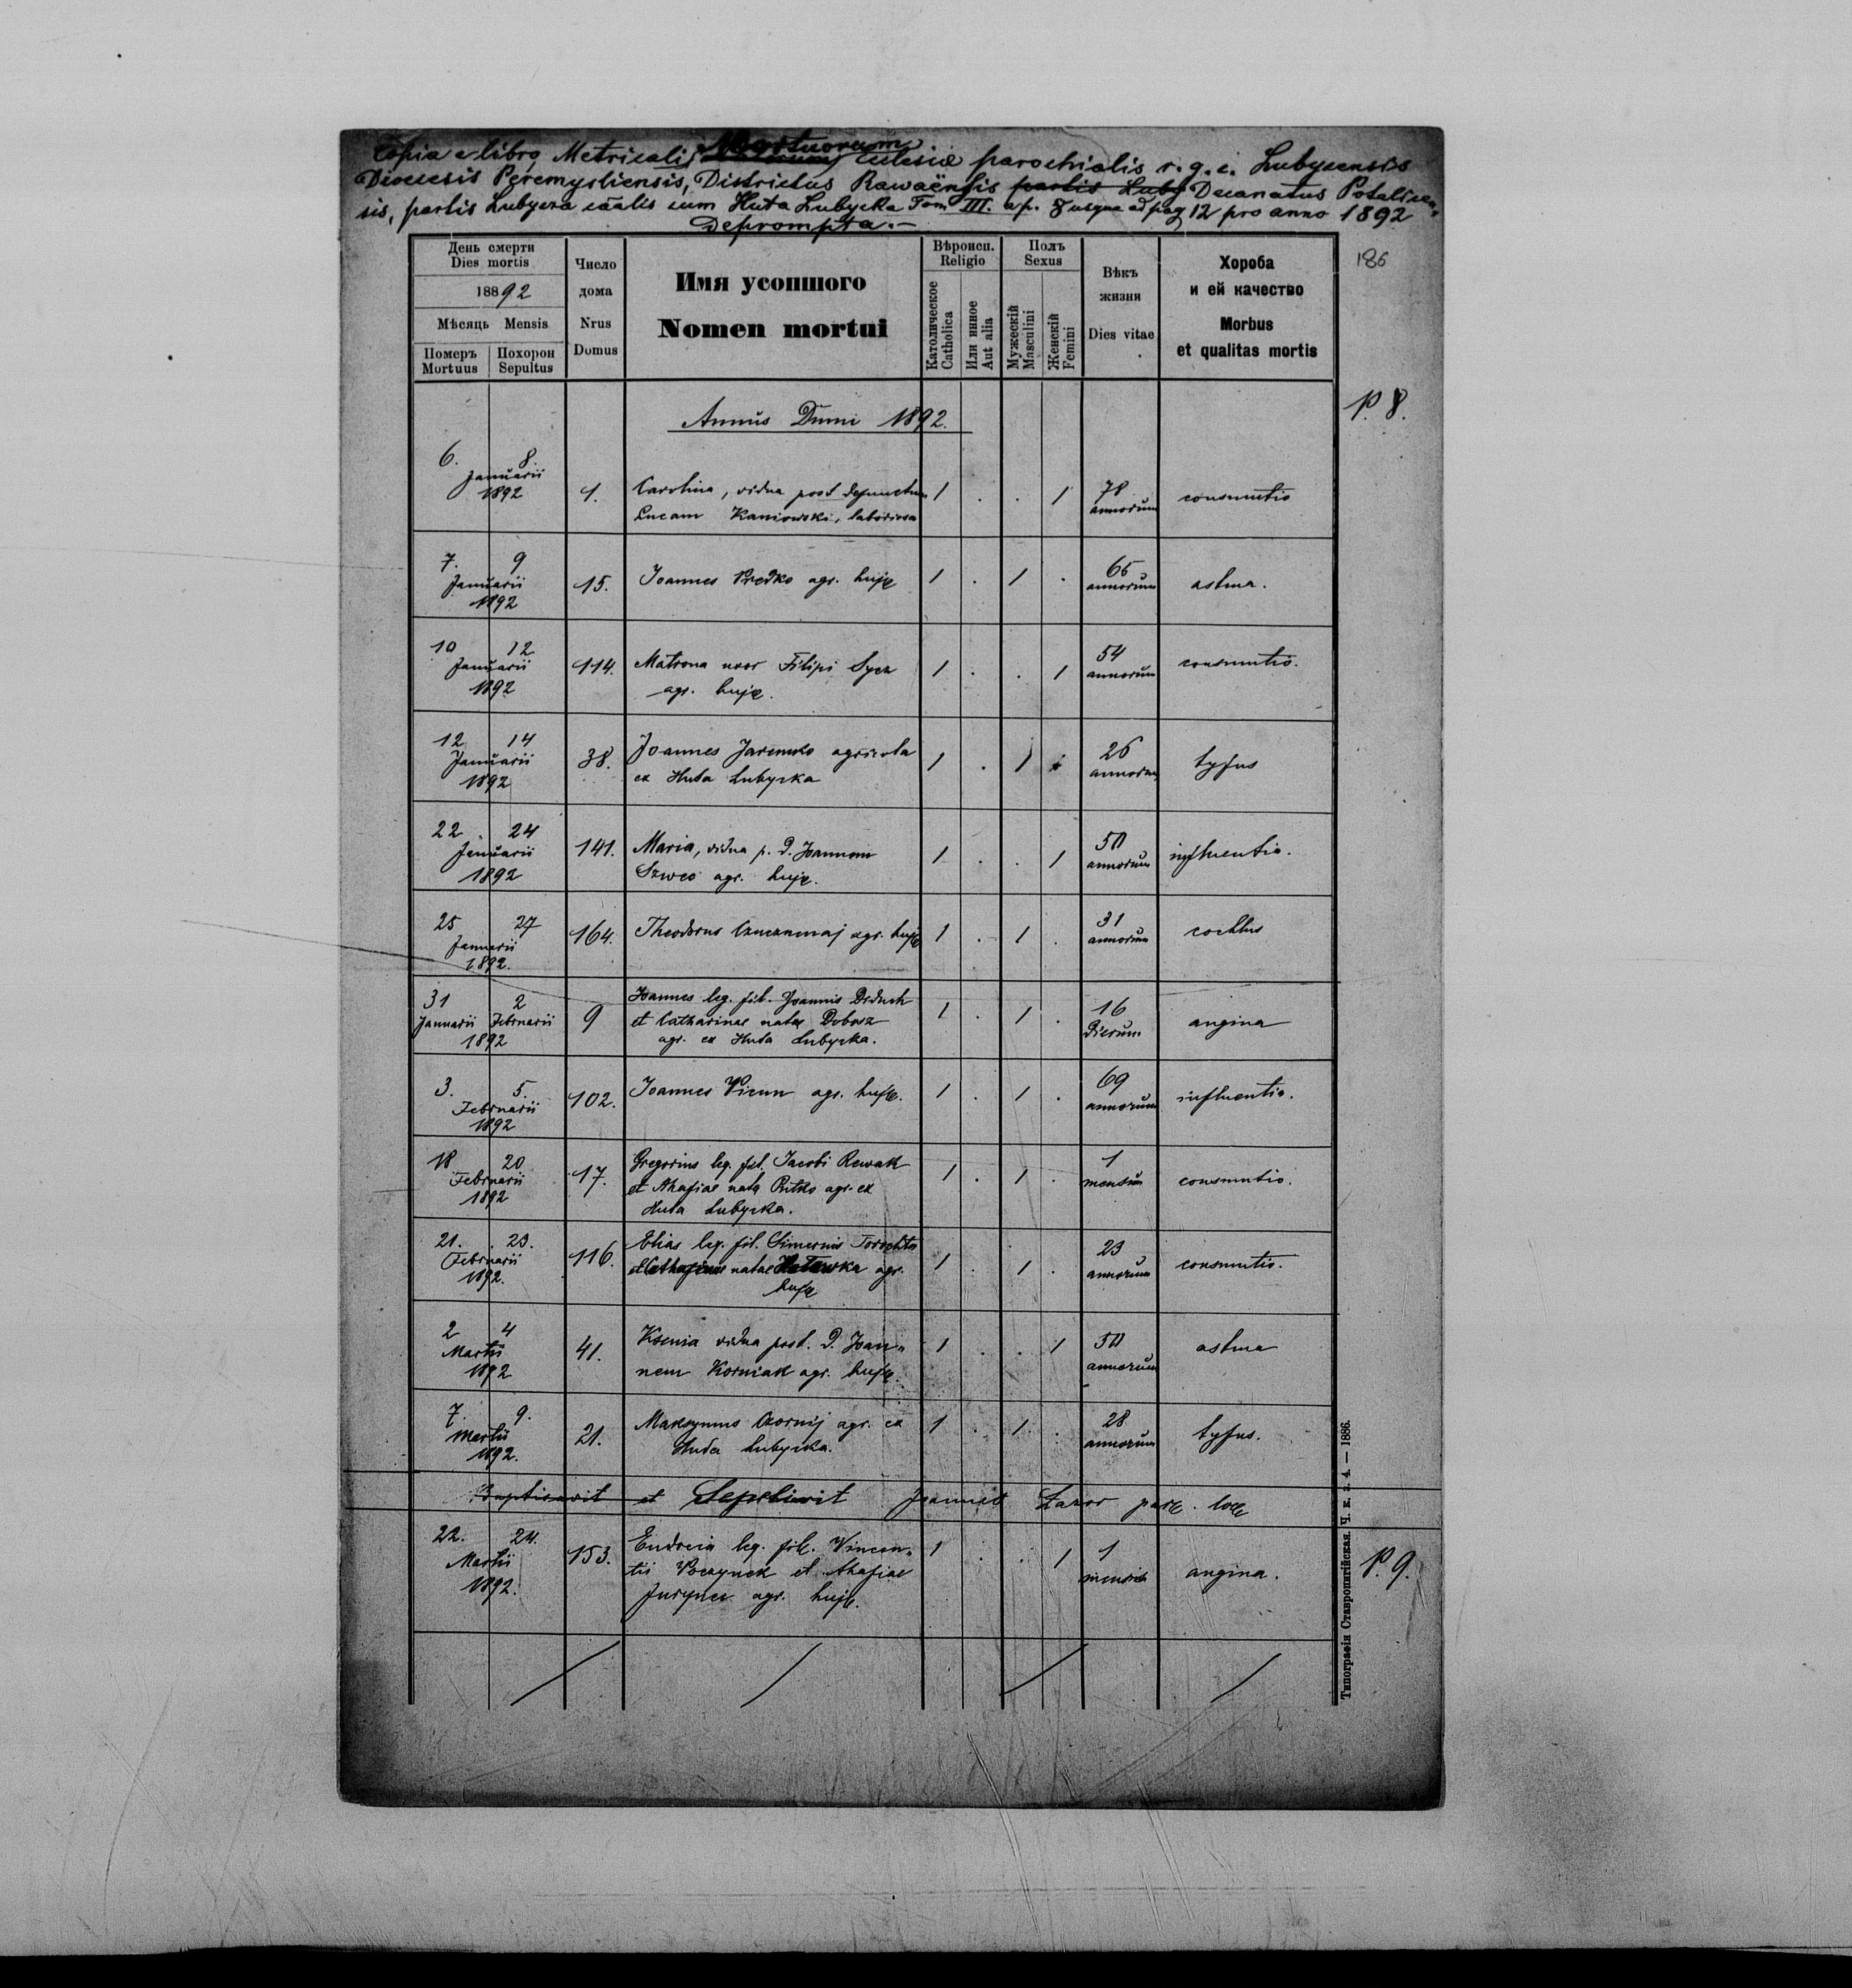 Copia e libro Metricali Mortuorum ecclesiae parochialis r. g. c. Lubycensis
Dioecesis Peremysliensis, Districtus Rawaënsis partis Luby Decanatus Potelicen-
sis, partis Lubycza cum Huta Lubycka Tom III. a p. 8 usque ad pag 12 pro anno 1892
Deprompta.-
День смерти
Dies mortis
1892
Мѣсяць Mensis
Померъ Mortuus
Похорон Sepultus
Число дома
Nrus Domus
Имя усопшого
Nomen mortui
Вѣроисп. Religio
Католическое Catholica
Или инное Aut alia
Полъ Sexus
Мужескій Masculini
Женскій Femini
Вѣкъ жизни
Dies vitae
Хороба и ей качество
Morbus et qualitas mortis
186
Annus Dmni 1892.
P. 8.
6. 8. Januarii 1892 1. Carolina, vidua post defunctum 1 . . 1 78 annorum consumtio
Lucam Kaniowski, laboriosa
7. 9 Januarii 1892 15. Joannes Predko agr. hujc 1 . 1 . 65 annorum astma.
10 12 Januarii 1892 114. Matrona uxor Filipi Sycz 1 . . 1 54 annorum consumtio.
agr. hujc.
12 14 Januarii 1892 38. Joannes Jaremko agricola 1 . 1 . 26 annorum tyfus
ex Huta Lubycka
22 24 Januarii 1892 141. Maria, vidua p. D. Joannem 1 . . 1 50 annorum influentia.
Szweć agr. hujc.
25 27 Januarii 1892. 164. Theodorus agr. hujc 1 . 1 . 31 annorum
31 Januarii 2 Februarii 1892 9 Joannes leg. fil. Joannis Dziuch 1 . 1 . 16 dierum angina
et Catharinae natae Dobosz
agr. ex Huta Lubycka.
3. 5. Februarii 1892 102. Joannes agr. hujc. 1 . 1 . 69 annorum influentia.
18 20 Februarii 1892 17. Gregorius leg. fil. Jacobi Rewak 1 . 1 . 1 mensium consumtio.
et Ahafiae nata Pitko agr. ex
Huta Lubycka.
21. 23. Februarii 1892. 116. Elias leg. fil. Simeonis 1 . 1 . 23 annorum consumtio.
et natae agr.
hujc
2 4 Martii 1892 41. Ksenia vidua post. D. Joan- 1 . . 1 50 annorum astma
nem Korniak agr. hujc.
7. 9. Martii 1892. 21. Maksymus Czornij agr. ex 1 . 1 . 28 annorum tyfus.
Huta Lubycka.
Baptisavit et Sepelivit Joannes Lazor parc. locc
22. 24. Martii 1892. 153. Eudocia leg. fil. Vincen- 1 . . 1 1 mensis angina.
tii et Ahafiae
agr. hujc.
P. 9.
Типографія Ставропигійская. Ч. к. з. 4. — 1886.